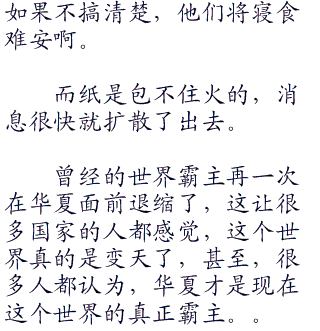 如果不搞清楚，他们将寝食
难安啊。
　　而纸是包不住火的，消
息很快就扩散了出去。
　　曾经的世界霸主再一次
在华夏面前退缩了，这让很
多国家的人都感觉，这个世
界真的是变天了，甚至，很
多人都认为，华夏才是现在
这个世界的真正霸主。。